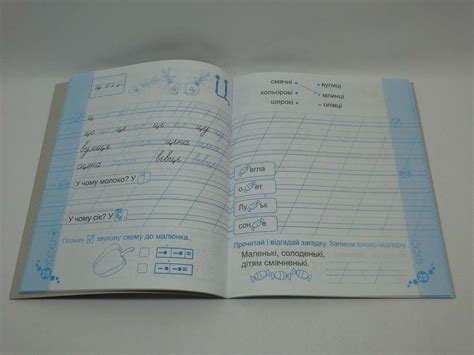 Ц
ц
це ця цу
вулиця
вівця
У чому молоко? У
У чому сік? У
Познач звукову схему до малюнка.
20
смачні вулиці
кольорові млинці
широкі олівці
егла
о ет
Лу ьк
сон е
Прочитай і відгадай загадку. Запиши слово-відгадку.
Маленькі, солоденькі,
дітям смачненькі.
21